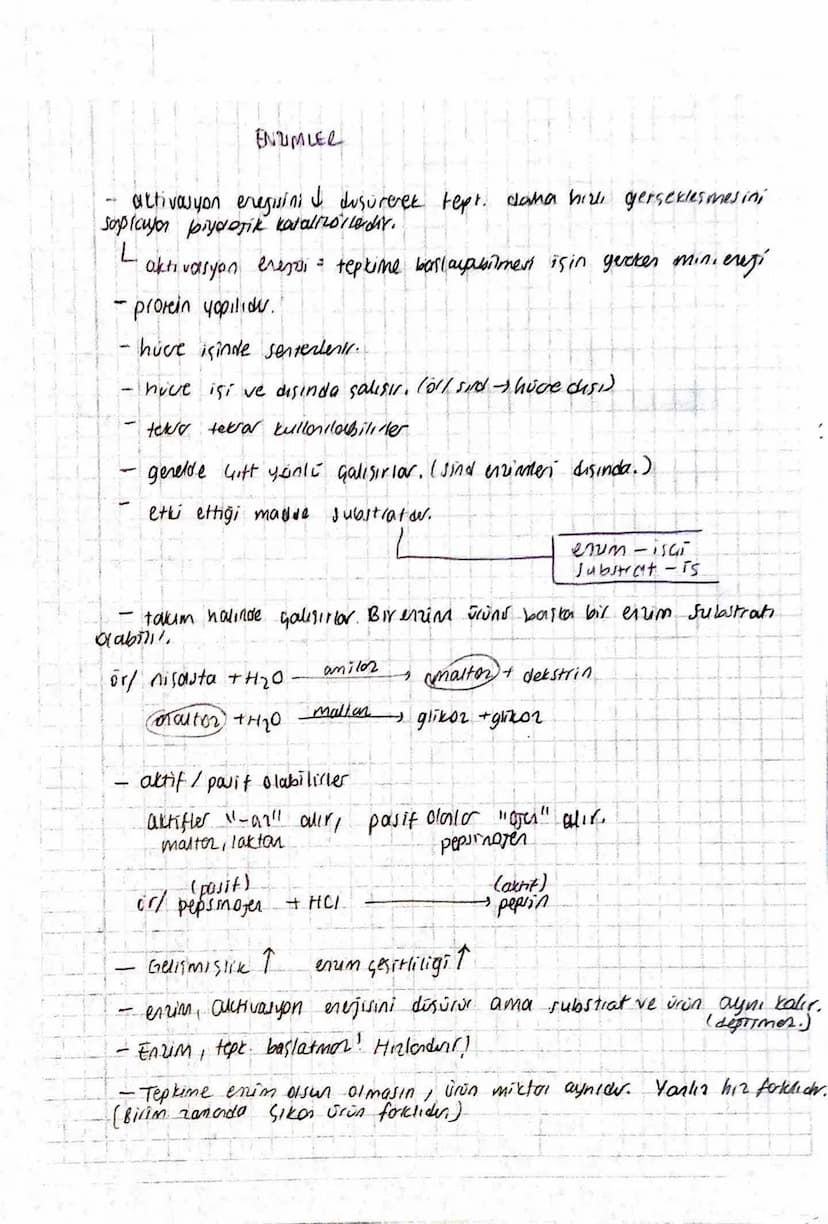 ENZİMLER
- aktivasyon enerjisini ↓ düşürerek tepk. daha hızlı gerçekleşmesini
sağlayan biyolojik katalizörlerdir.
└ aktivasyon enerjisi = tepkime başlayabilmesi için gereken min. enerji
- protein yapılıdır.
- hücre içinde sentezlenir.
- hücre içi ve dışında çalışır. (ör/ sind → hücre dışı)
- tekrar tekrar kullanılabilirler
- genelde çift yönlü çalışırlar. (sind enzimleri dışında.)
- etki ettiği madde substratdır.
enzim - işçi
substrat - iş
- takım halinde çalışırlar. Bir enzim ürünü başka bir enzim substratı
olabilir.
ör/ nişasta + H2O amilaz → maltoz + dekstrin
maltoz + H2O maltaz → glikoz + glikoz
- aktif / pasif olabilirler
aktifler "-az" alır, pasif olanlar "ojen" alır.
maltaz, laktaz pepsinojen
(pasif) (aktif)
ör/ pepsinojen + HCl → pepsin
- Gelişmişlik ↑ enzim çeşitliliği ↑
- enzim, aktivasyon enerjisini düşürür ama substrat ve ürün aynı kalır.
(değişmez.)
- Enzim, tepk. başlatmaz! Hızlandırır!
- Tepkime enzim olsun olmasın, ürün miktarı aynıdır. Yanlız hız farklıdır.
(Birim zamanda çıkan ürün farklıdır)